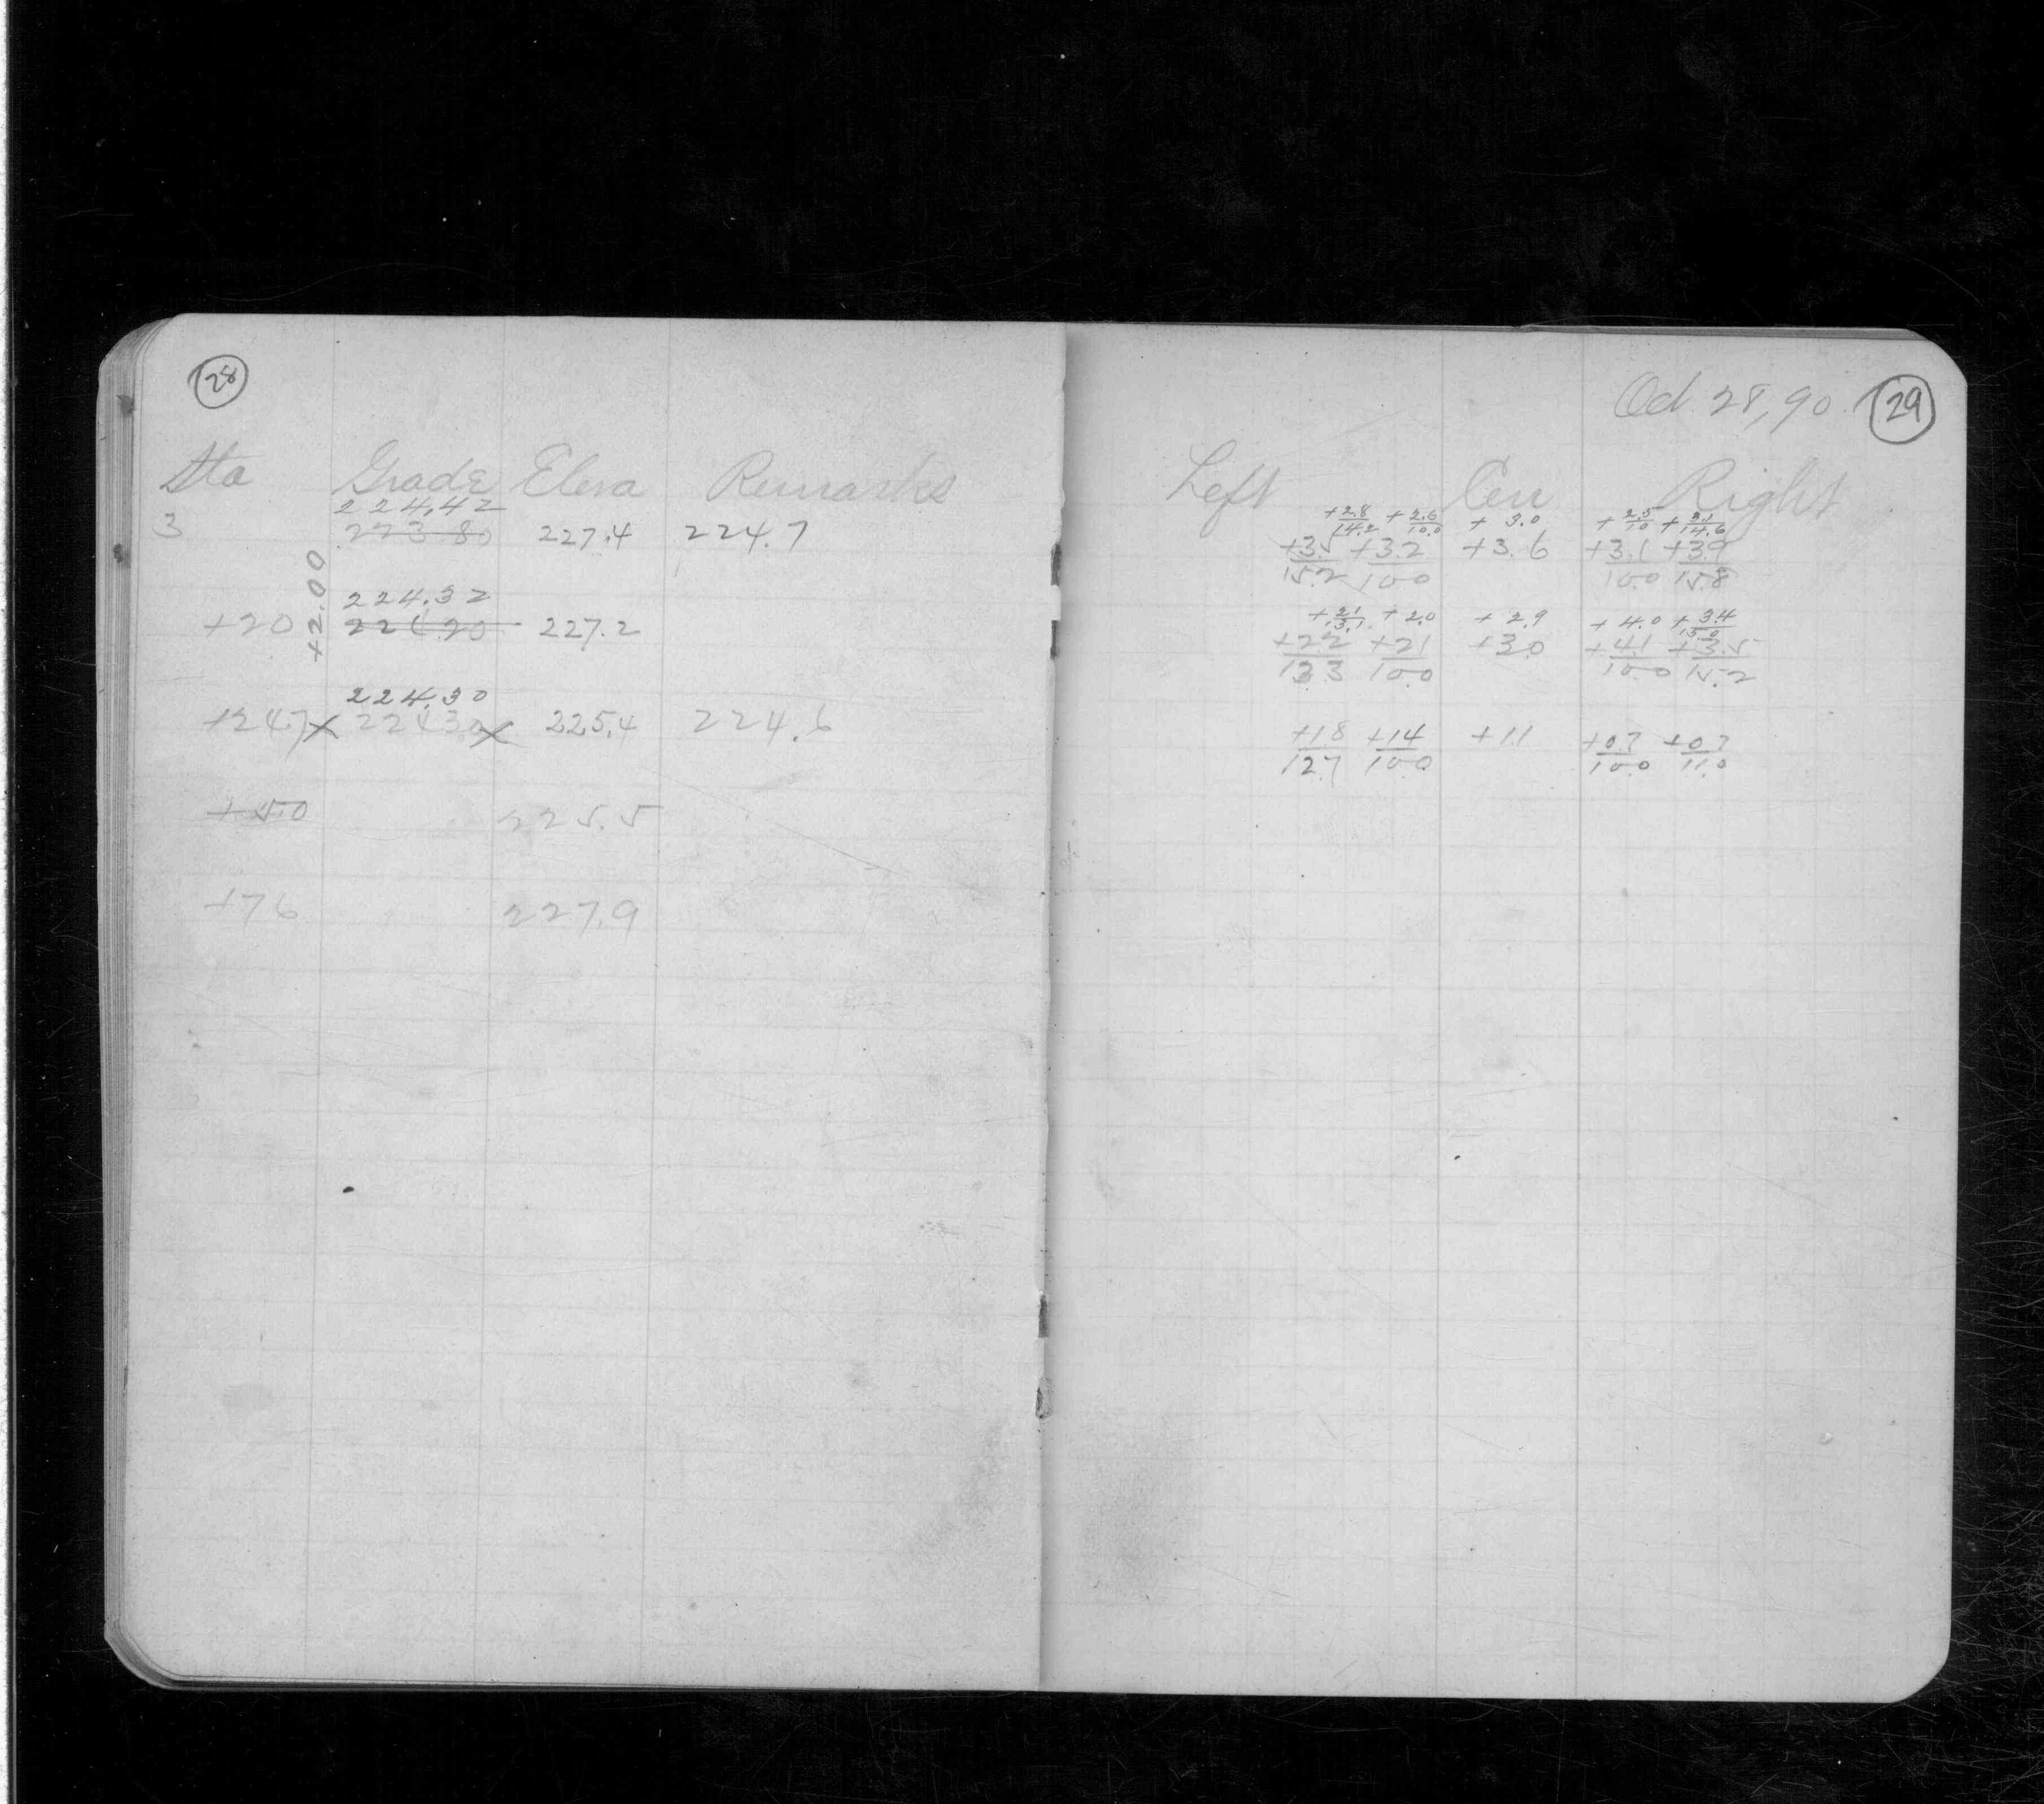 28
Sta Grade Eleva Remarks
224.42
3 223.80 227.4 224.7
+2.00
224.32
+20 224.20 227.2
224.30
+24.7 x 224.30 x 225.4 224.6
+50 225.5
+76 227.9
Oct 28, 90 29
Left Cen Right
+2.8/14.2 +2.6/10.0 +3.0 +2.5/10 +3.1/14.6
+3.5/15.2 +3.2/10.0 +3.6 +3.1/10.0 +3.9/15.8
+2.1/13.1 +2.0 +2.9 +4.0 +3.4/15.0
+2.2/13.3 +2.1/10.0 +3.0 +4.1/10.0 +3.5/15.2
+1.8/12.7 +1.4/10.0 +1.1 +0.7/10.0 +0.7/11.0